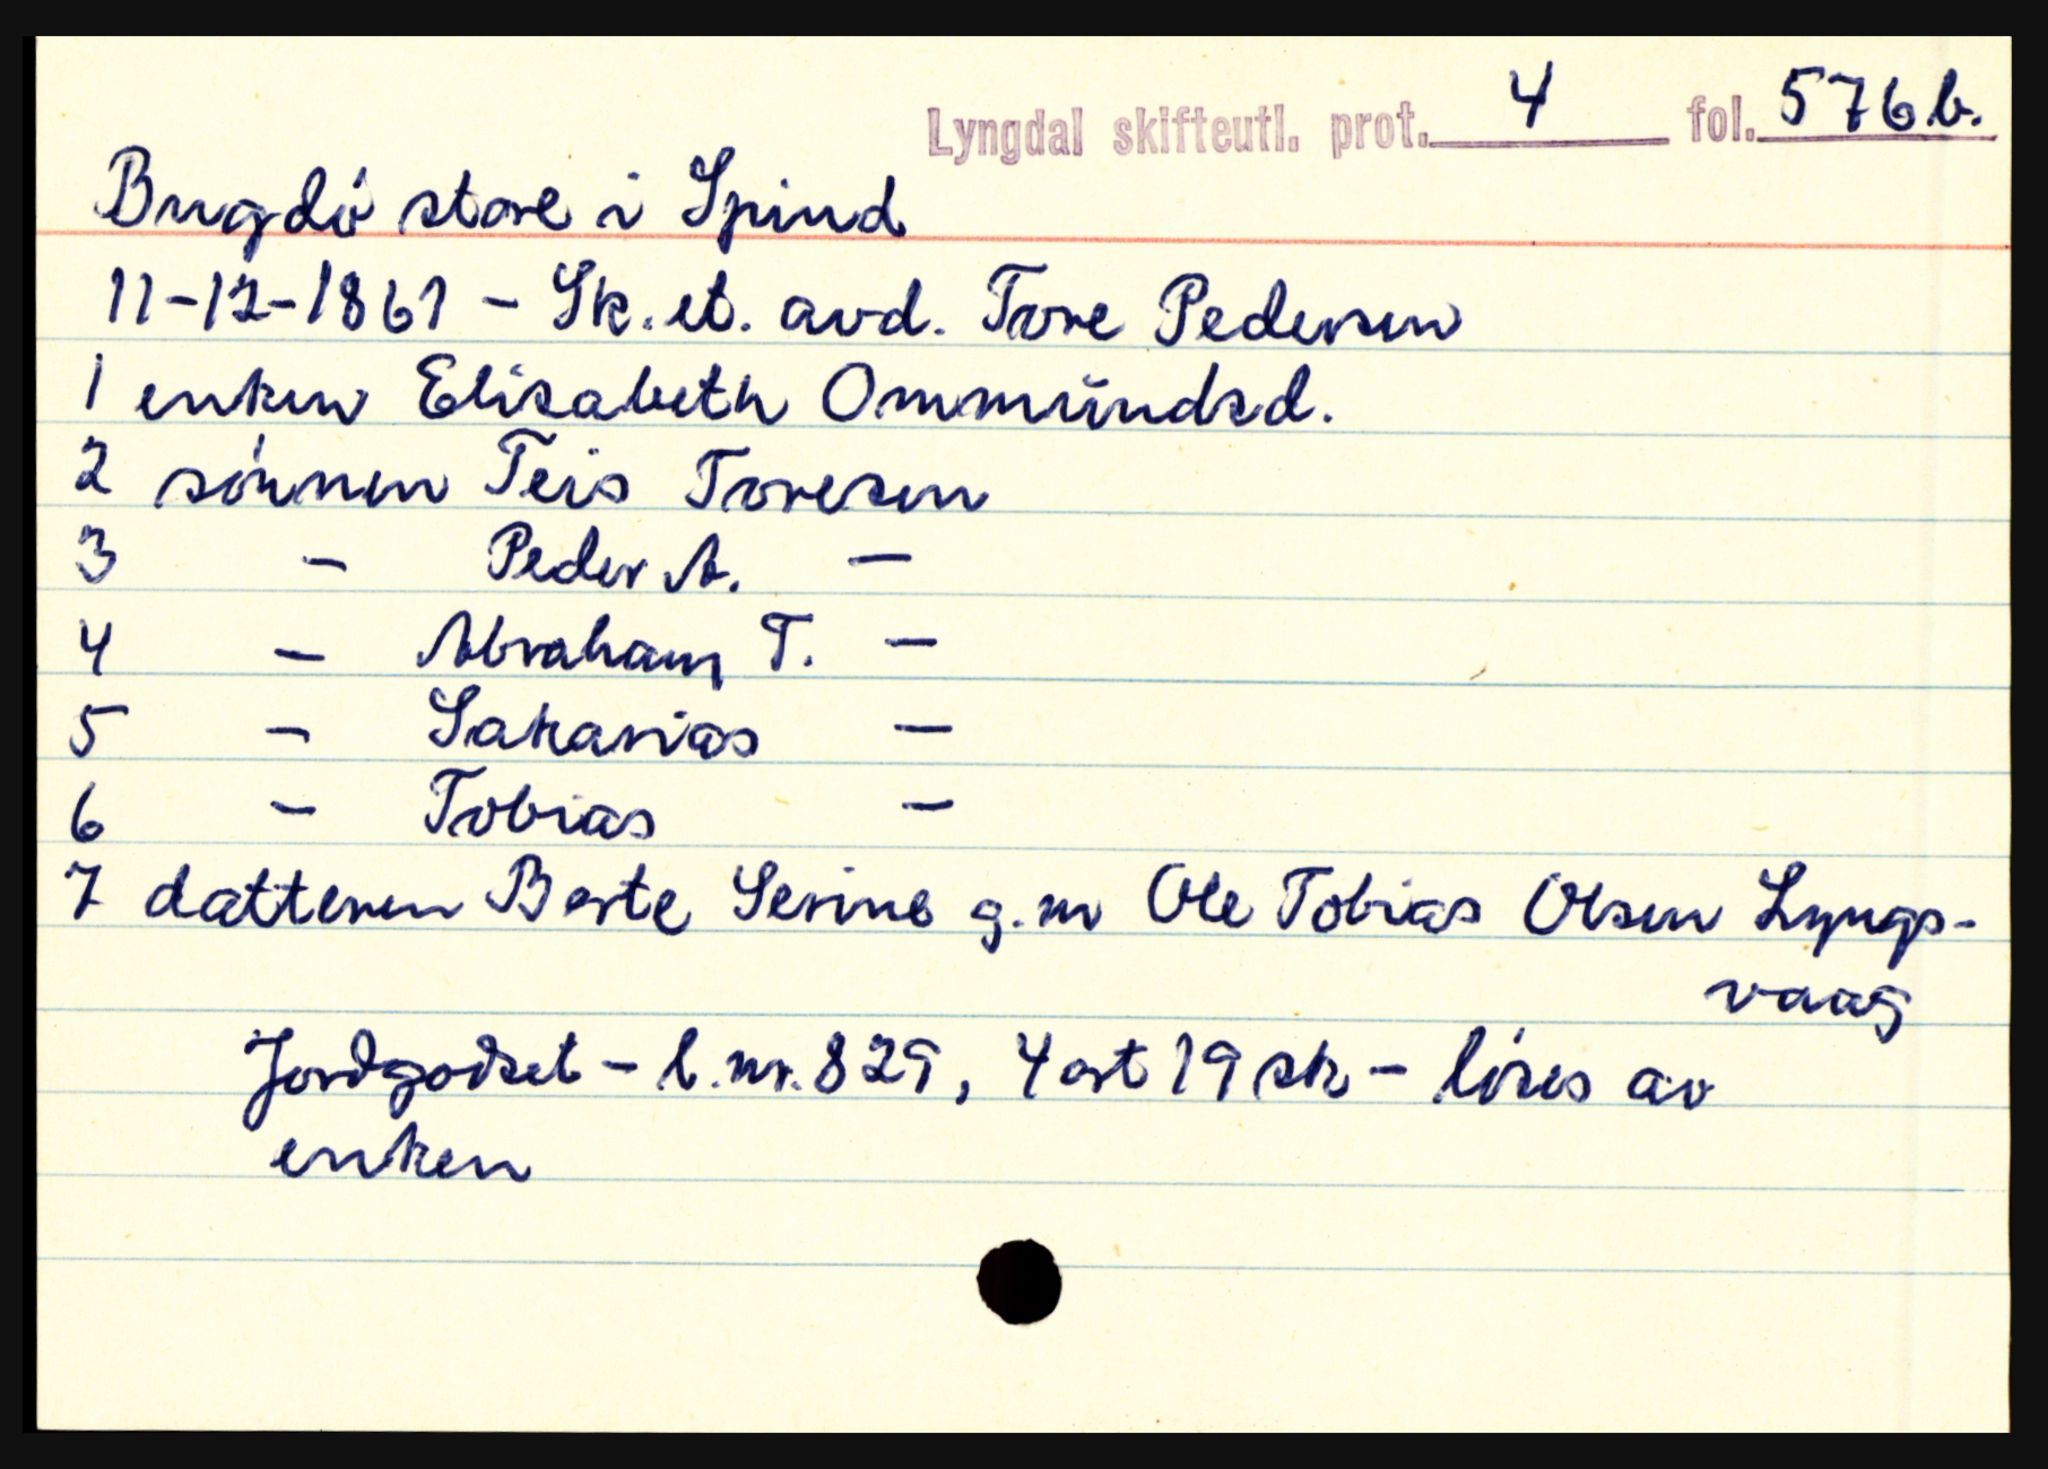 Lyngdal skifteutl. prot. 4 fol. 576b.
Bugdö store i Spind
11-12-1861 - Sk. et. avd. Tore Pedersen
1 enken Elisabeth Ommŭndsd.
2 sönnen Teis Toresen
3 - Peder A. -
4 - Abraham T. -
5 - Sakarias -
6 - Tobias -
7 datteren Berte Serine g.m Ole Tobias Olsen Lyngs-
vaag
Jordgodset - l.nr. 829, 4 ort 19 sk - löses av
enken